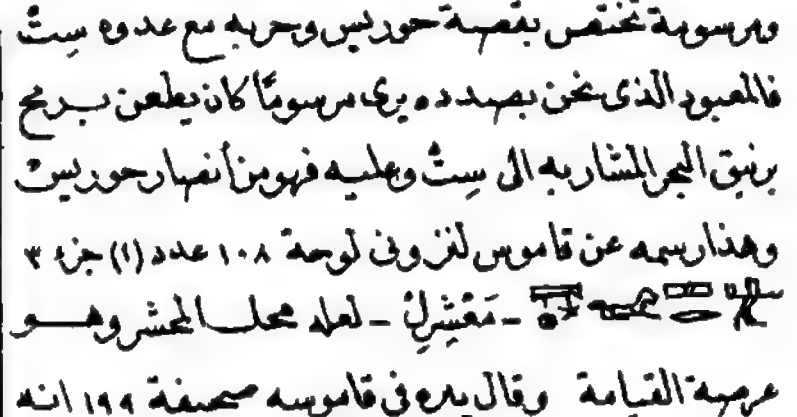 ومرسومة تختص بقصة حوريس وحربه مع عدوه سِتْ
فالمعبود الذى نحن بصدده يرى مرسومًا كان يطعن برمح
برنيق البحر المشاربه الى سِتْ وعليه فهومن أنصار حوريس
وهذا رسمه عن قاموس لنزونى لوحة ١٠٨ عدد (١) جزء ٣
- لعله محل المحشر وهو
عرصة القيامة وقال بيره فى قاموسه صحيفة ١٩٩ انه